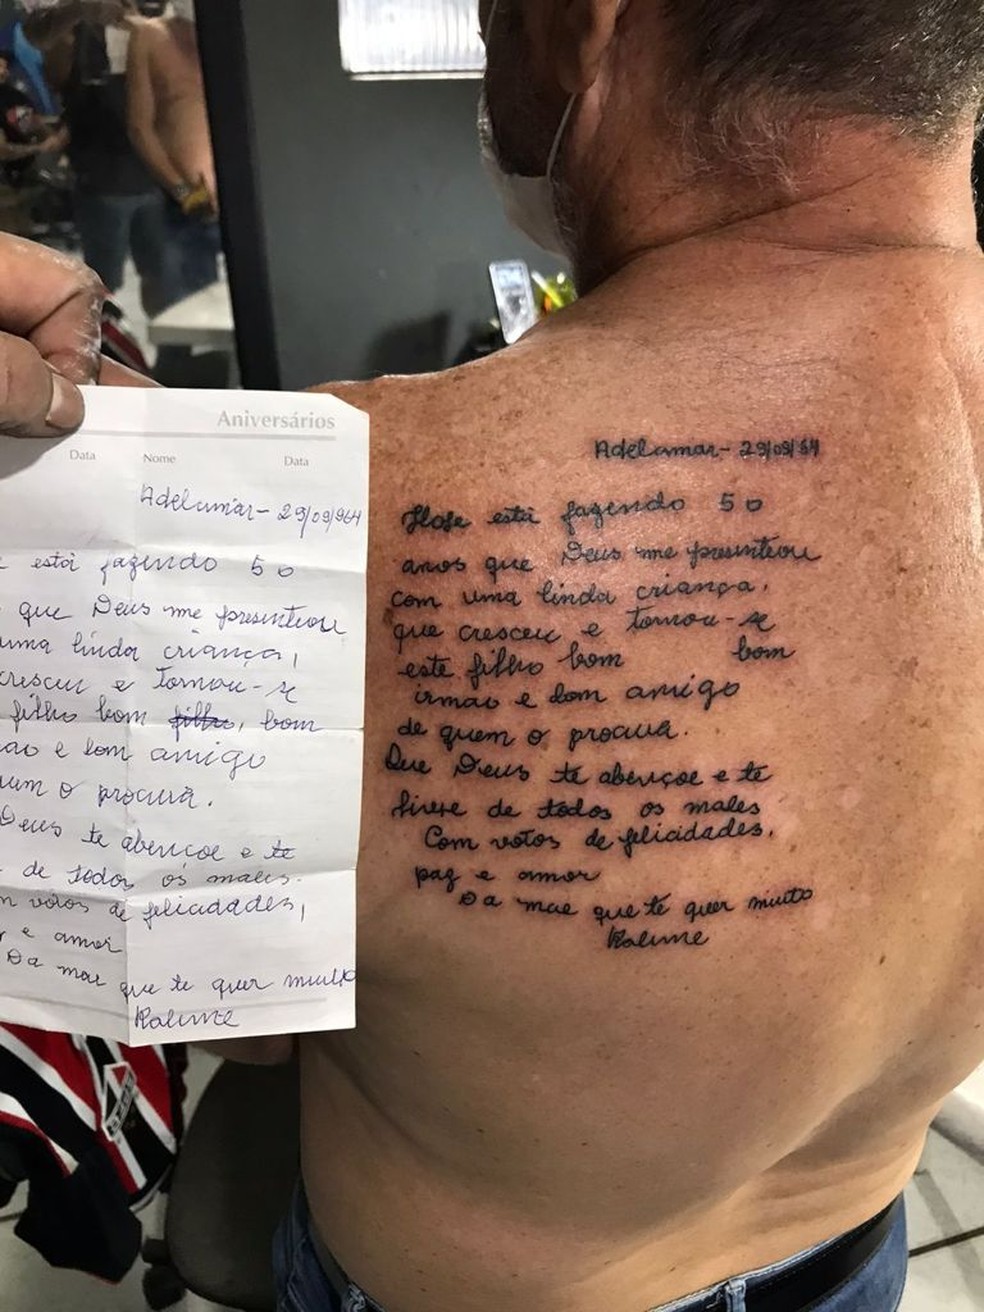 Aniversários
Data Nome Data
Adelamar - 29/09/964
está fazendo 50
que Deus me presenteou
uma linda criança,
cresceu e tornou-se
filho bom filho, bom
ao e bom amigo
uem o procura.
Deus te abençoe e te
de todos os males.
m votos de felicidades,
e amor
Da mae que te quer muito
Adelamar - 29/09/64
Hoje está fazendo 50
anos que Deus me presenteou
com uma linda criança,
que cresceu e tornou-se
este filho bom bom
irmao e bom amigo
de quem o procura.
Que Deus te abençoe e te
livre de todos os males
Com votos de felicidades,
paz e amor
Da mae que te quer muito